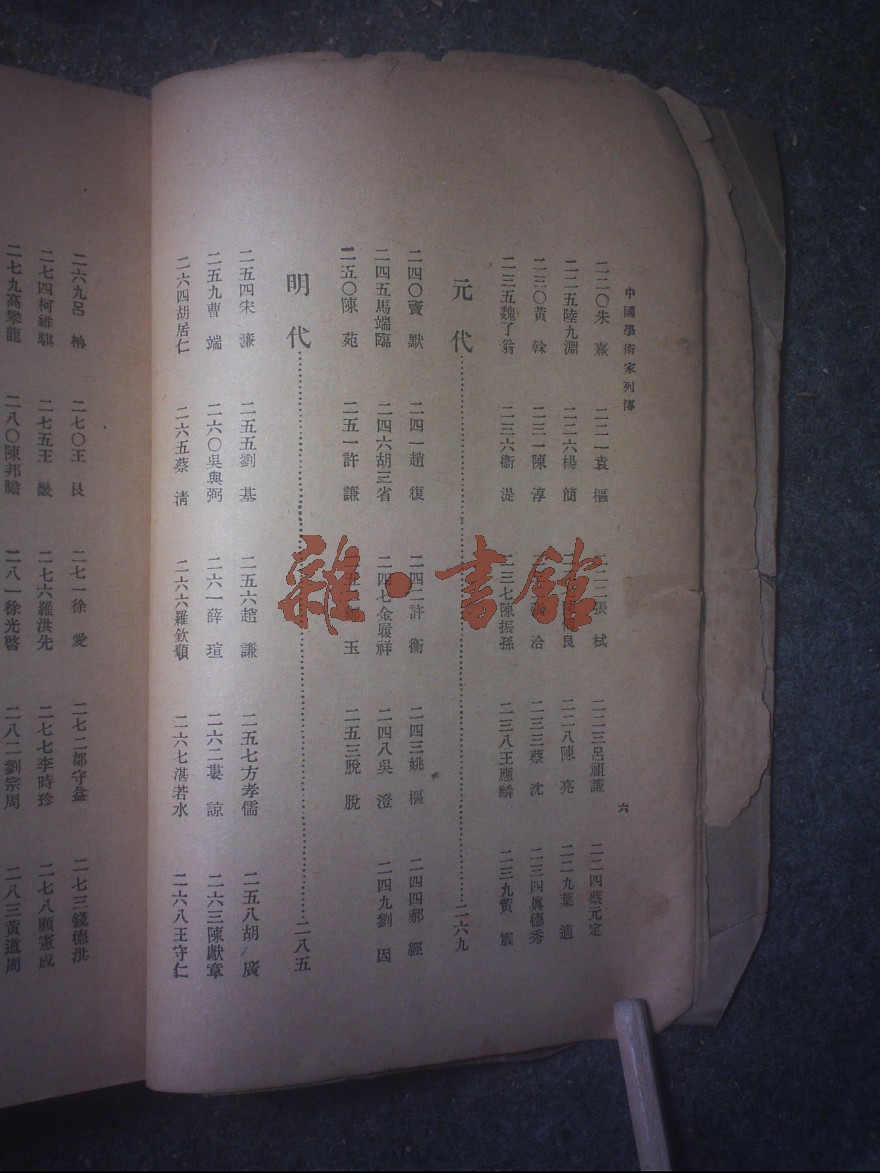 中國學術家列傳
六
二二〇朱熹 二二一袁樞 二二張栻 二二三呂祖謙 二二四蔡元定
二二五陸九淵 二二六楊簡 良 二二八陳亮 二二九葉適
二三〇黃榦 二三一陳淳 洽 二三三蔡沈 二三四眞德秀
二三五魏了翁 二三六衞湜 二三七陳振孫 二三八王應麟 二三九黃震
元代……二六九
二四〇竇默 二四一趙復 二四二許衡 二四三姚樞 二四四郝經
二四五馬端臨 二四六胡三省 二四七金履祥 二四八吳澄 二四九劉因
二五〇陳苑 二五一許謙 玉 二五三脫脫
明代……二八五
二五四宋濂 二五五劉基 二五六趙謙 二五七方孝孺 二五八胡廣
二五九曹端 二六〇吳與弼 二六一薛瑄 二六二婁諒 二六三陳獻章
二六四胡居仁 二六五蔡淸 二六六羅欽順 二六七湛若水 二六八王守仁
二六九呂柟 二七〇王艮 二七一徐愛 二七二鄒守益 二七三錢德洪
二七四柯維騏 二七五王 二七六羅洪先 二七七李時珍 二七八顧憲成
二七九高攀龍 二八〇陳邦瞻 二八一徐光啓 二八二劉宗周 二八三黃道周
雜·書館